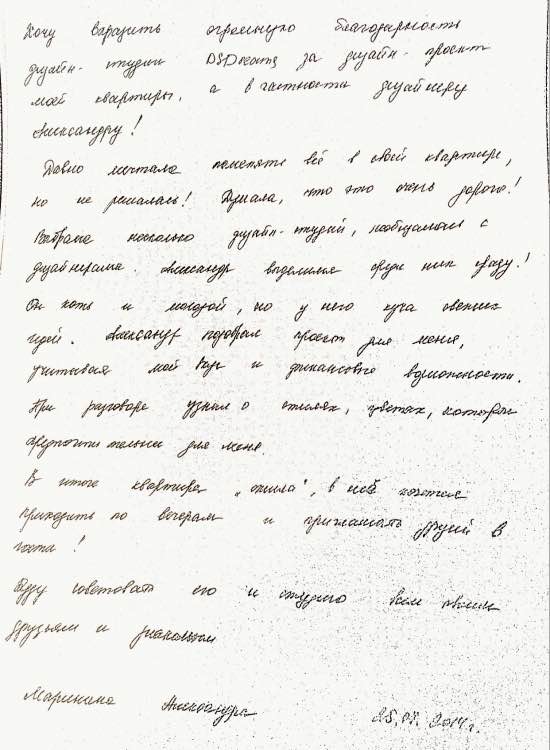 Хочу выразить огромную благодарность
дизайн-студии DSDreams за дизайн-проект
моей квартиры, а в частности дизайнеру
Александру!
Давно мечтала поменять всё в своей квартире,
но не решалась! Думала, что это очень дорого!
Выбрала несколько дизайн-студий, пообщалась с
дизайнерами. Александр выделился среди них сразу!
Он хоть и молодой, но у него куча свежих
идей. Александр подобрал проект для меня,
учитывая мой вкус и финансовые возможности.
При разговоре узнал о стилях, цветах, которые
предпочтительны для меня.
В итоге квартира "ожила", в неё хочется
приходить по вечерам и приглашать друзей в
гости!
Буду советовать его и студию всем своим
друзьям и знакомым
Маринина Александра
25.07.2014г.